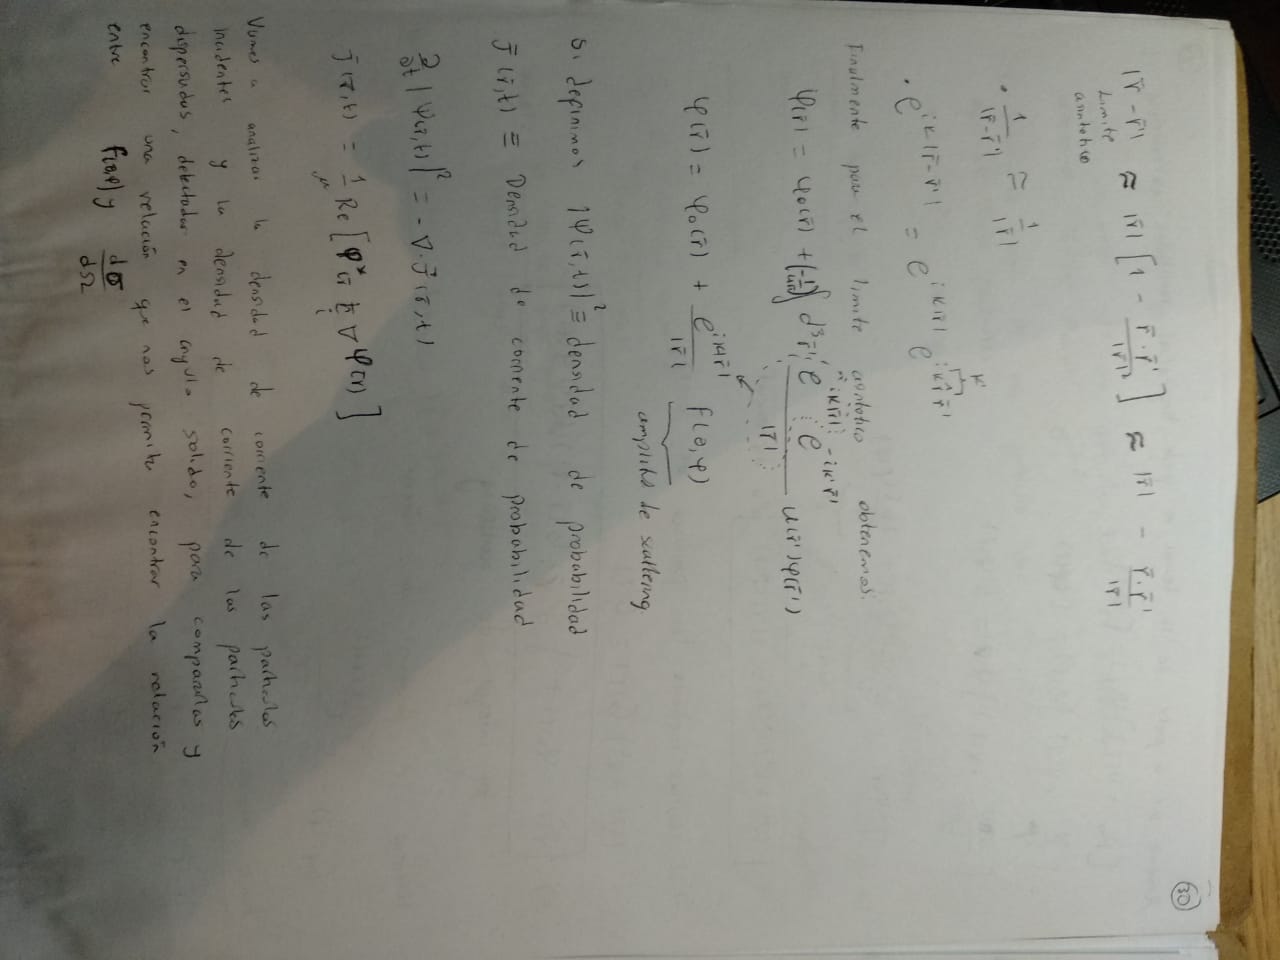 30
|r̄ - r̄'| ≈ |r̄| [ 1 - r̄·r̄'/|r̄|² ] ≈ |r̄| - r̄·r̄'/|r̄|
Limite
asintotico
• 1/|r̄-r̄'| ≈ 1/|r̄|
• e^{ik|r̄-r̄'|} = e^{ik|r̄|} e^{-ik r̂·r̄'}
k'
Finalmente para el limite asintotico obtenemos:
φ(r̄) = φ₀(r̄) + (-1/4π) ∫ d³r̄' e^{ik|r̄|} e^{-ik'r̄'} / |r̄| u(r̄')φ(r̄')
φ(r̄) = φ₀(r̄) + e^{ik|r̄|}/|r̄| f(θ,φ)
amplitud de scattering
Si definimos |ψ(r̄,t)|² ≡ densidad de probabilidad
J̄(r̄,t) ≡ Densidad de corriente de probabilidad
∂/∂t |ψ(r̄,t)|² = - ∇·J̄(r̄,t)
J̄(r̄,t) = 1/μ Re [ φ*(r̄) ħ/i ∇ φ(r̄) ]
Vamos a analizar la densidad de corriente de las particulas
incidentes y la densidad de corriente de las particulas
dispersadas, detectadas en el angulo solido, para compararlas y
encontrar una relación que nos permita encontrar la relación
entre f(θ,φ) y dσ/dΩ